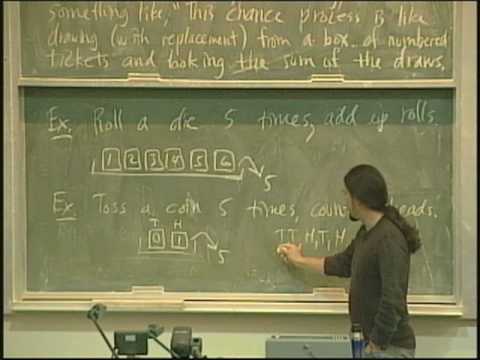 something like, "This chance process is like
drawing (with replacement) from a box of numbered
tickets and looking the sum of the draws.
Ex: Roll a die 5 times, add up rolls.
1 2 3 4 5 6 5
Ex: Toss a coin 5 times, coun eads.
T H
0 1 5
T T, H, T, H